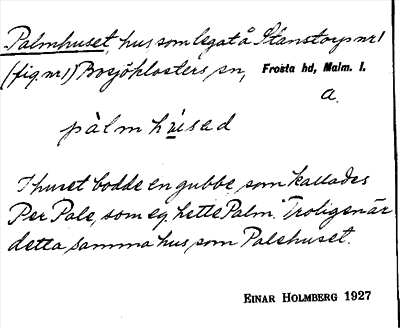 Palmhuset, hus som legat å Stanstorps nr 1
(fig. nr 1) Bosjöklosters sn, Frosta hd, Malm. l.
a.
pàlmhúsəd
I huset bodde en gubbe, som kallades
Per Pale, som eg. hette Palm. Troligen är
detta samma hus som Palehuset.
EINAR HOLMBERG 1927